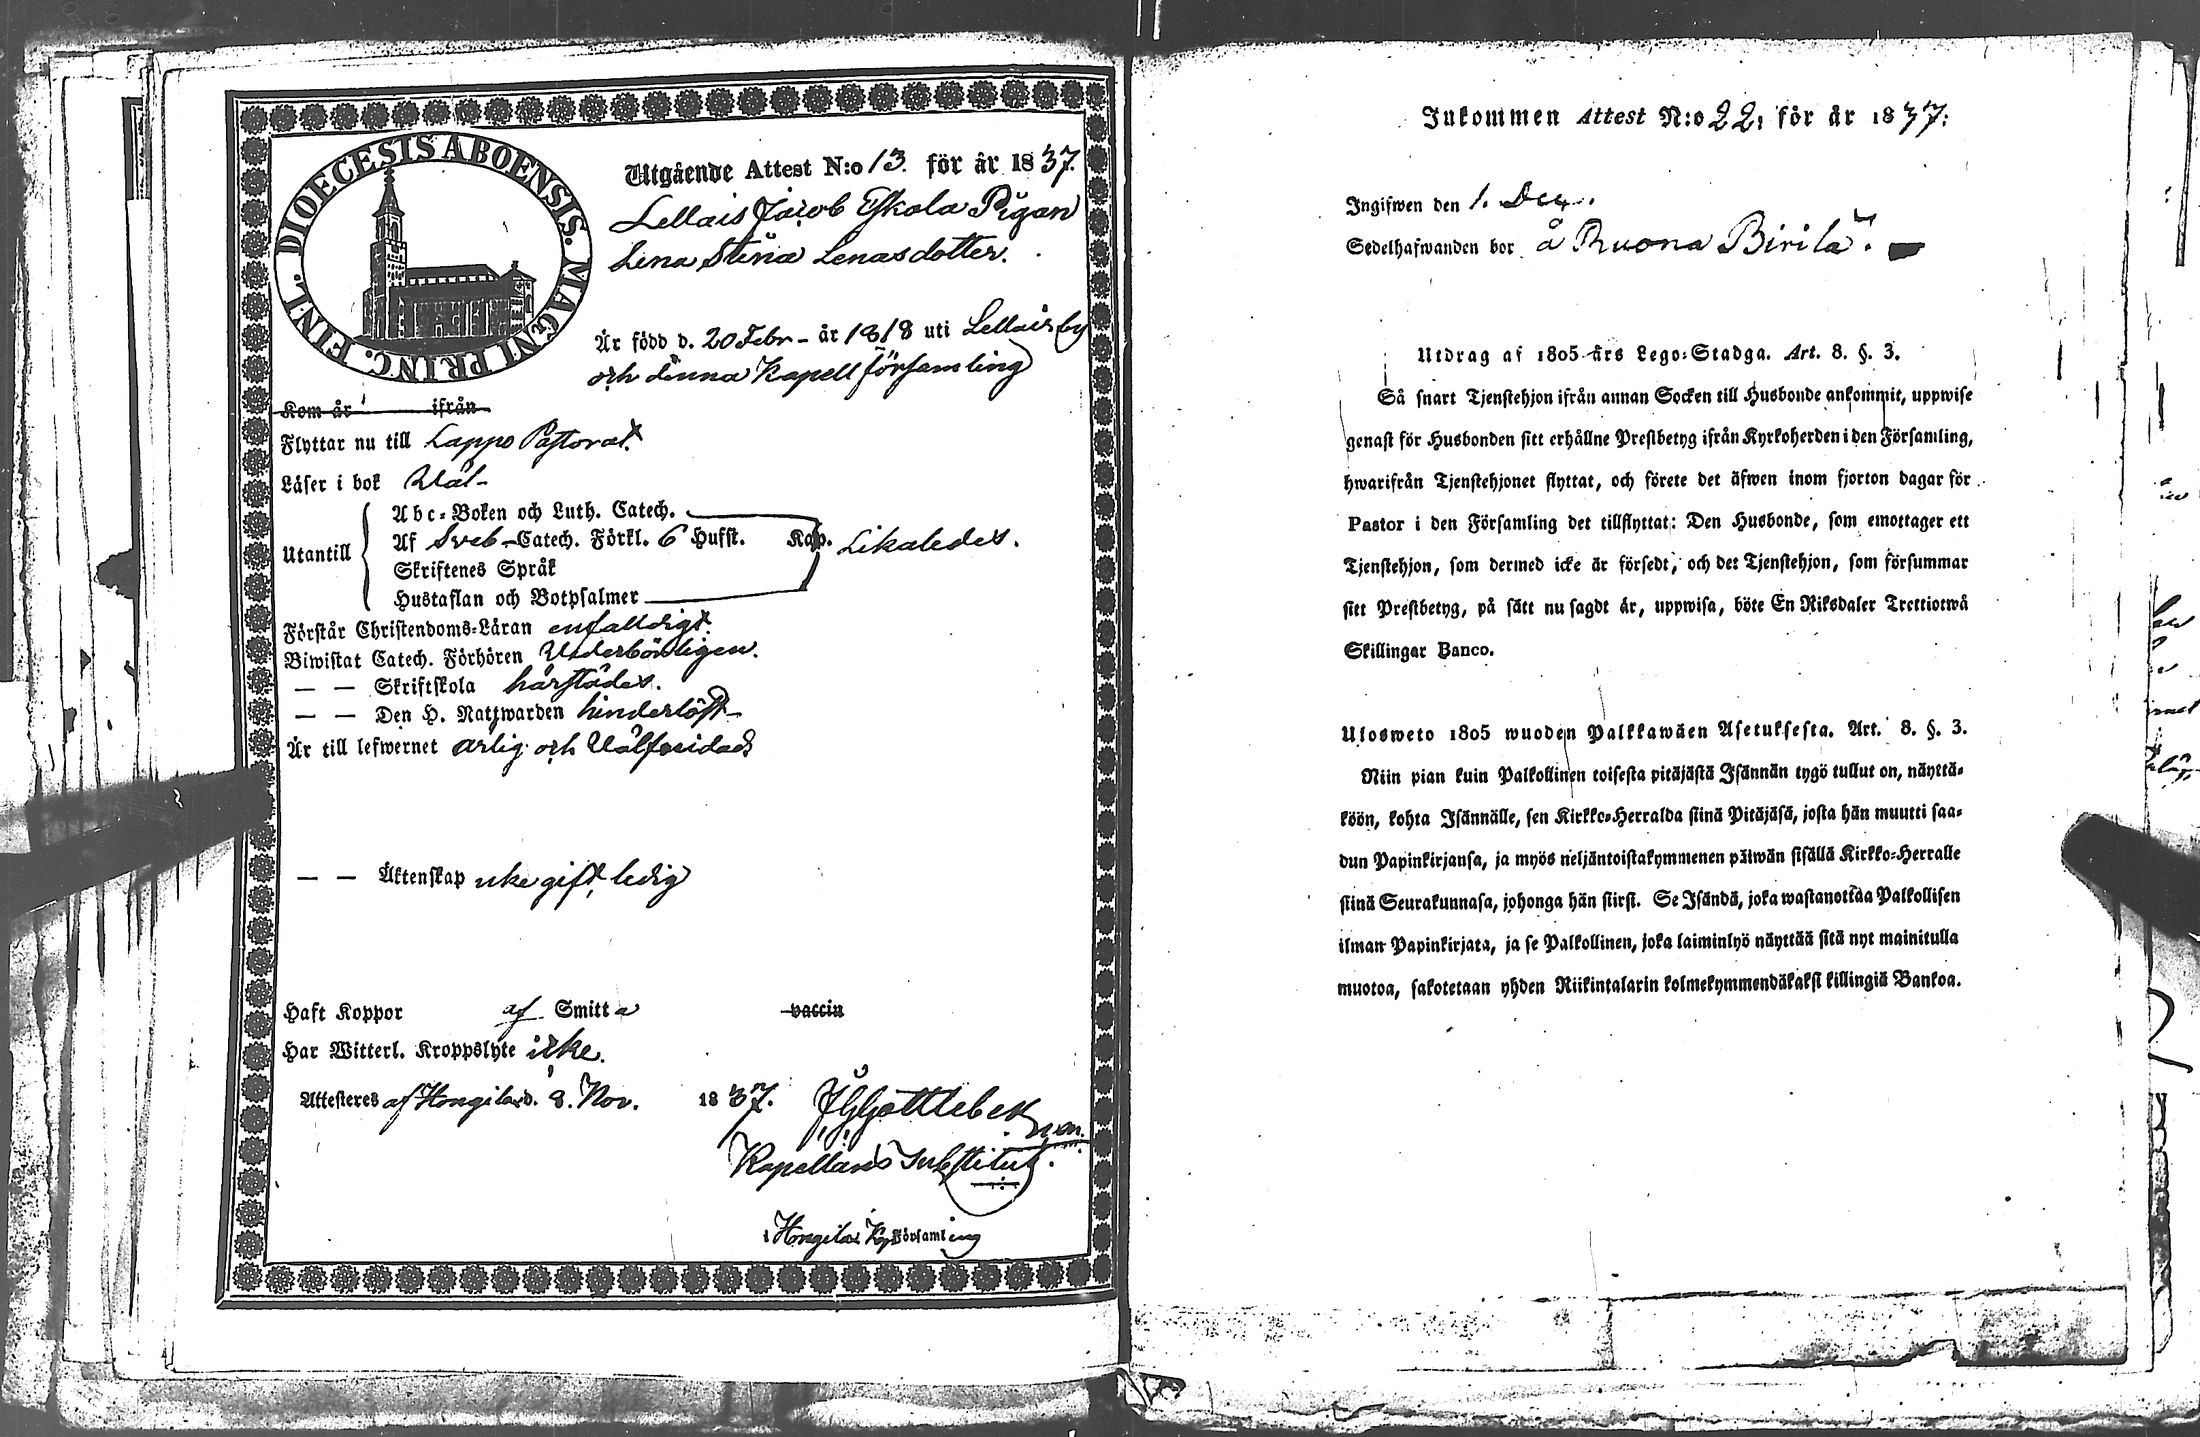 DIOECESIS ABOENSIS. MAGNI PRINC. FINL.
Utgående Attest N:o 13. för år 1837.
Lellais Jacob Eskola Pigan
Lena Stina Lenasdotter.
Är född d. 20 Febr. år 1818 uti Lellais by
och denna Kapell församling
Kom år ifrån
Flyttar nu till Lappo Pastorat.
Läser i bok Wäl
Utantill
Abc-Boken och Luth. Catech.
Af Sveb. Catech. Förkl. 6 Hufst. Kap. Likaledes.
Skriftenes Språk
Hustaflan och Botpsalmer
Förstår Christendoms-Läran enfaldigt.
Biwistat Catech. Förhören Wederbörligen.
— — Skriftskola härstädes.
— — Den H. Nattwarden hinderlöst
Är till lefwernet ärlig och Wälfräjdad
— — Äktenskap icke gift, ledig
Haft Koppor af Smitta vaccin
Har Witterl. Kroppslyte icke.
Attesteras af Hongilax d. 8. Nov. 1837. Gottleben
Kapellans Substitut.
i Hongilax Kap församling
Inkommen Attest N:o 22, för år 1837.
Ingifwen den 1. Dec.
Sedelhafwanden bor å Ruona Birilä.
Utdrag af 1805 års Lego-Stadga. Art. 8. §. 3.
Så snart Tjenstehjon ifrån annan Socken till Husbonde ankommit, uppwise
genast för Husbonden sitt erhållne Prestbetyg ifrån Kyrkoherden i den Församling,
hwarifrån Tjenstehjonet flyttat, och förete det äfwen inom fjorton dagar för
Pastor i den Församling det tillflyttat: Den Husbonde, som emottager ett
Tjenstehjon, som dermed icke är försedt, och det Tjenstehjon, som försummar
sitt Prestbetyg, på sätt nu sagdt är, uppwisa, böte En Riksdaler Trettiotwå
Skillingar Banco.
Ulosweto 1805 wuoden Palkkawäen Asetuksesta. Art. 8. §. 3.
Niin pian kuin Palkollinen toisesta pitäjästä Isännän tygö tullut on, näyttä-
köön, kohta Isännälle, sen Kirkko-Herralda siinä Pitäjäsä, josta hän muutti saa-
dun Papinkirjansa, ja myös neljäntoistakymmenen päiwän sisällä Kirkko-Herralle
siinä Seurakunnasa, johonga hän siirsi. Se Isändä, joka wastanottaa Palkollisen
ilman Papinkirjata, ja se Palkollinen, joka laiminlyö näyttää sitä nyt mainitulla
muotoa, sakotetaan yhden Riikintalarin kolmekymmendäkaksi killingiä Bankoa.